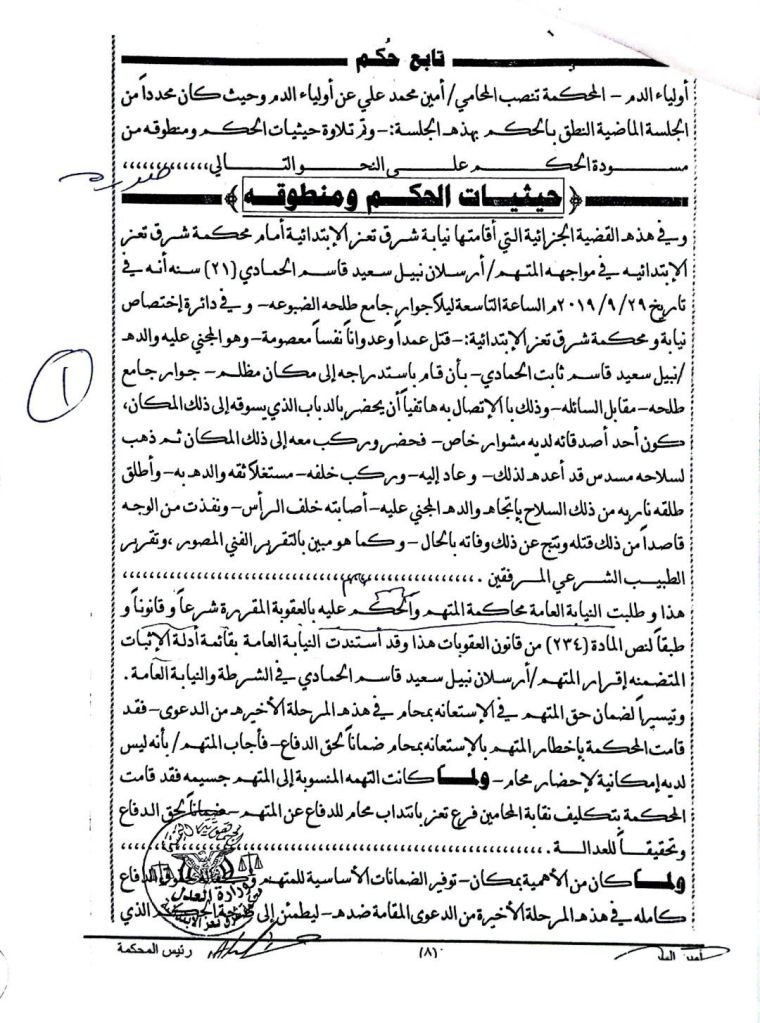 تابع حُكم
أولياء الدم – المحكمة تنصب المحامي/ أمين محمد علي عن أولياء الدم وحيث كان محدداً من
الجلسة الماضية النطق بالحكم بهذه الجلسة:- وتم تلاوة حيثيات الحكم ومنطوقه من
مسودة الحكم على النحو التالي،،،،،،،،،،،،،
﴿ حيثيات الحكم ومنطوقه ﴾
وفي هذه القضية الجزائية التي أقامتها نيابة شرق تعز الإبتدائية أمام محكمة شرق تعز
الإبتدائيه في مواجهه المتهم/ أرسلان نبيل سعيد قاسم الحمادي (٢١) سنه أنه في
تاريخ ٢٠١٩/٩/٢٩م الساعة التاسعة ليلاً جوار جامع طلحه الضبوعه- وفي دائرة إختصاص
نيابة ومحكمة شرق تعز الإبتدائية:- قتل عمداً وعدواناً نفساً معصومة- وهو المجني عليه والده
/نبيل سعيد قاسم ثابت الحمادي- بأن قام باستدراجه إلى مكان مظلم- جوار جامع
طلحه- مقابل السائله- وذلك با الإتصال به هاتفياً أن يحضر بالدباب الذي يسوقه إلى ذلك المكان،
كون أحد أصدقائه لديه مشوار خاص- فحضر وركب معه إلى ذلك المكان ثم ذهب
لسلاحه مسدس قد أعده لذلك- وعاد إليه- وركب خلفه- مستغلاً ثقه والده به- وأطلق
طلقه ناريه من ذلك السلاح بإتجاه والده المجني عليه- أصابته خلف الرأس- ونفذت من الوجه
قاصداً من ذلك قتله ونتج عن ذلك وفاته بالحال- وكما هو مبين بالتقرير الفني المصور ،وتقرير
الطبيب الشرعي المرفقين .،،،،،،،،،،،،،،،،،،،،،،،،،،،،،،،،،،،،،،،،
هذا وطلبت النيابة العامة محاكمة المتهم والحكم عليه بالعقوبة المقررة شرعاً وقانوناً و
طبقاً لنص المادة (٢٣٤) من قانون العقوبات هذا وقد أستندت النيابة العامة بقائمة أدلة الإثبات
المتضمنه إقرار المتهم/ أرسلان نبيل سعيد قاسم الحمادي في الشرطة والنيابة العامة .
وتيسيراً لضمان حق المتهم في الإستعانه بمحام في هذه المرحلة الأخيره من الدعوى- فقد
قامت المحكمة بإخطار المتهم بالإستعانه بمحام ضماناً لحق الدفاع- فأجاب المتهم/ بأنه ليس
لديه إمكانية لإحضار محام- ولما كانت التهمه المنسوبة إلى المتهم جسيمه فقد قامت
المحكمة بتكليف نقابة المحامين فرع تعز بانتداب محام للدفاع عن المتهم- ضماناً لحق الدفاع
وتحقيقاً للعدالة .،،،،،،،،،،،،،،،،،،،،،،،،،،،،،،،،،،،،،،،،
ولما كان من الأهمية بمكان- توفير الضمانات الأساسية للمتهم وكفالة حقوق الدفاع
كامله في هذه المرحلة الأخيرة من الدعوى المقامة ضده- ليطمئن إلى الحكم الذي
وزارة العدل
١
أمين السر
(٨)
رئيس المحكمة